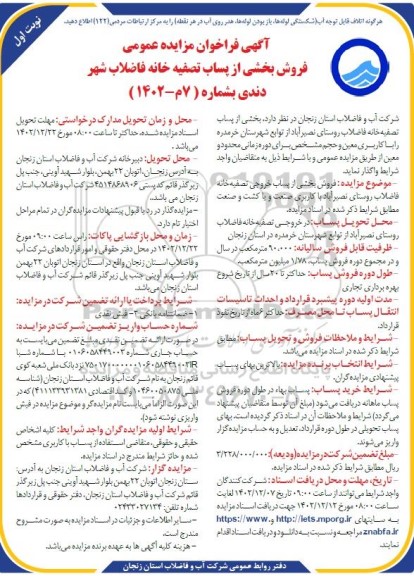 هرگونه اتلاف قابل توجه آب(شکستگی لوله‌ها، باز بودن لوله‌ها، هدر روی آب در هر نقطه) را به مرکز ارتباطات مردمی(۱۲۲) اطلاع دهید.
نوبت اول
آگهی فراخوان مزایده عمومی
فروش بخشی از پساب تصفیه خانه فاضلاب شهر
دندی بشماره (۷م-۱۴۰۲)
شرکت آب و فاضلاب استان زنجان در نظر دارد، بخشی از پساب
تصفیه‌خانه فاضلاب روستای نصیرآباد از توابع شهرستان خرمدره
را با کاربری معین و حجم مشخص برای دوره زمانی محدود و
معین از طریق مزایده عمومی و با شرایط ذیل به متقاضیان واجد
شرایط واگذار نماید.
-موضوع مزایده: فروش بخشی از پساب خروجی تصفیه‌خانه
فاضلاب روستای نصیرآباد با کاربری صنعت و یا کشت و صنعت
مطابق شرایط ذکر شده در اسناد مزایده.
-محل تحویل پساب: در خروجی تصفیه‌خانه فاضلاب
روستای نصیرآباد از توابع شهرستان خرمدره در استان زنجان
-ظرفیت قابل فروش سالیانه: ۹۰.۰۰۰ مترمکعب در سال
و در مجموع دوره فروش پساب، ۱/۷۸ میلیون مترمکعب
-طول دوره فروش پساب: حداکثر تا ۲۰ سال از تاریخ شروع
بهره برداری تجاری
-مدت اولیه دوره پیشبرد قرارداد و احداث تاسیسات
انتقال پساب تا محل مصرف: حداکثر ۶ ماه از تاریخ نفوذ
قرارداد.
-شرایط و ملاحظات فروش و تحویل پساب: مطابق
شرایط ذکر شده در اسناد مزایده می‌باشد.
-شرایط انتخاب برنده مزایده: بالاترین بهای پساب
پیشنهادی مزایده‌گران.
-شرایط خرید پساب: پساب بهاء در طول دوره فروش
پساب ماهانه دریافت می شود (مبلغ آن توسط متقاضیان پیشنهاد
می‌گردد) شرایط و ملاحظات آن در اسناد ذکر گردیده است. بهای
پساب تحویلی در طول دوره قرارداد، تعدیل و به حساب مزایده‌گزار
واریز می‌شوند.
-مبلغ تضمین شرکت در مزایده (ودیعه): ۳/۲۲۸/۰۰۰/۰۰۰
ریال مطابق شرایط ذکر شده در اسناد مزایده
-تاریخ، مهلت و محل دریافت اسناد: شرکت‌کنندگان
واجد شرایط می‌توانند از ساعت ۰۹:۰۰ تاریخ ۱۴۰۲/۱۲/۰۷ لغایت
ساعت ۰۸:۰۰ مورخ ۱۴۰۲/۱۲/۱۲ جهت دریافت اسناد مزایده
به سایتهای http://iets.mporg.ir و https://www.
znabfa.ir مراجعه و نسبت به دانلود و دریافت اسناد اقدام
نمایند.
-محل و زمان تحویل مدارک درخواستی: مهلت تحویل
اسناد مزایده شده، حداکثر تا ساعت ۰۸:۰۰ مورخ ۱۴۰۲/۱۲/۲۲
می‌باشد.
-محل تحویل: دبیرخانه شرکت آب و فاضلاب استان زنجان
به آدرس زنجان، اتوبان ۲۲ بهمن، بلوار شهید آوینی، جنب پل
زیرگذر قائم کد پستی ۴۵۱۴۸۶۸۹۰۶ شرکت آب و فاضلاب استان
زنجان می باشد.
-مزایده‌گذار در رد یا قبول پیشنهادات مزایده گران در تمام مراحل
اختیار تام دارد.
-زمان و محل بازگشایی پاکات: راس ساعت ۰۹:۰۰ مورخ
۱۴۰۲/۱۲/۲۲ در محل دفتر حقوقی و امور قراردادهای شرکت آب
و فاضلاب استان زنجان واقع در استان زنجان اتوبان ۲۲ بهمن
بلوار شهید آوینی جنب پل زیرگذر قائم شرکت آب و فاضلاب
استان زنجان می‌باشد.
-شرایط پرداخت یا ارائه تضمین شرکت در مزایده:
۱- ضمانتنامه بانکی ۲- فیش نقدی
شماره حساب واریز تضمین شرکت در مزایده:
در صورت ارائه تضمین نقدی، مبلغ تضمین می‌بایست به
این صورت الزاما می‌بایست نام مزایده‌گر و موضوع مزایده در فیش
واریزی نوشته شود).
-شرایط اولیه مزایده گران واجد شرایط: کلیه اشخاص
حقیقی و حقوقی، متقاضی استفاده از پساب با کاربری مشخص
شده و حائز شرایط مندرج در اسناد مزایده.
-مزایده گزار: شرکت آب و فاضلاب استان زنجان به آدرس:
زنجان، اتوبان ۲۲ بهمن، بلوار شهید آوینی، جنب پل زیرگذر
قائم شرکت آب و فاضلاب استان زنجان، دفتر حقوقی و قراردادها
تماس: ۰۲۴۳۳۰۲۷۱۳۴
-سایر اطلاعات و جزئیات در اسناد مزایده به صورت مشروح
مندرج است.
- هزینه کلیه آگهی ها به عهده برنده مزایده می‌باشد.
دفتر روابط عمومی شرکت آب و فاضلاب استان زنجان